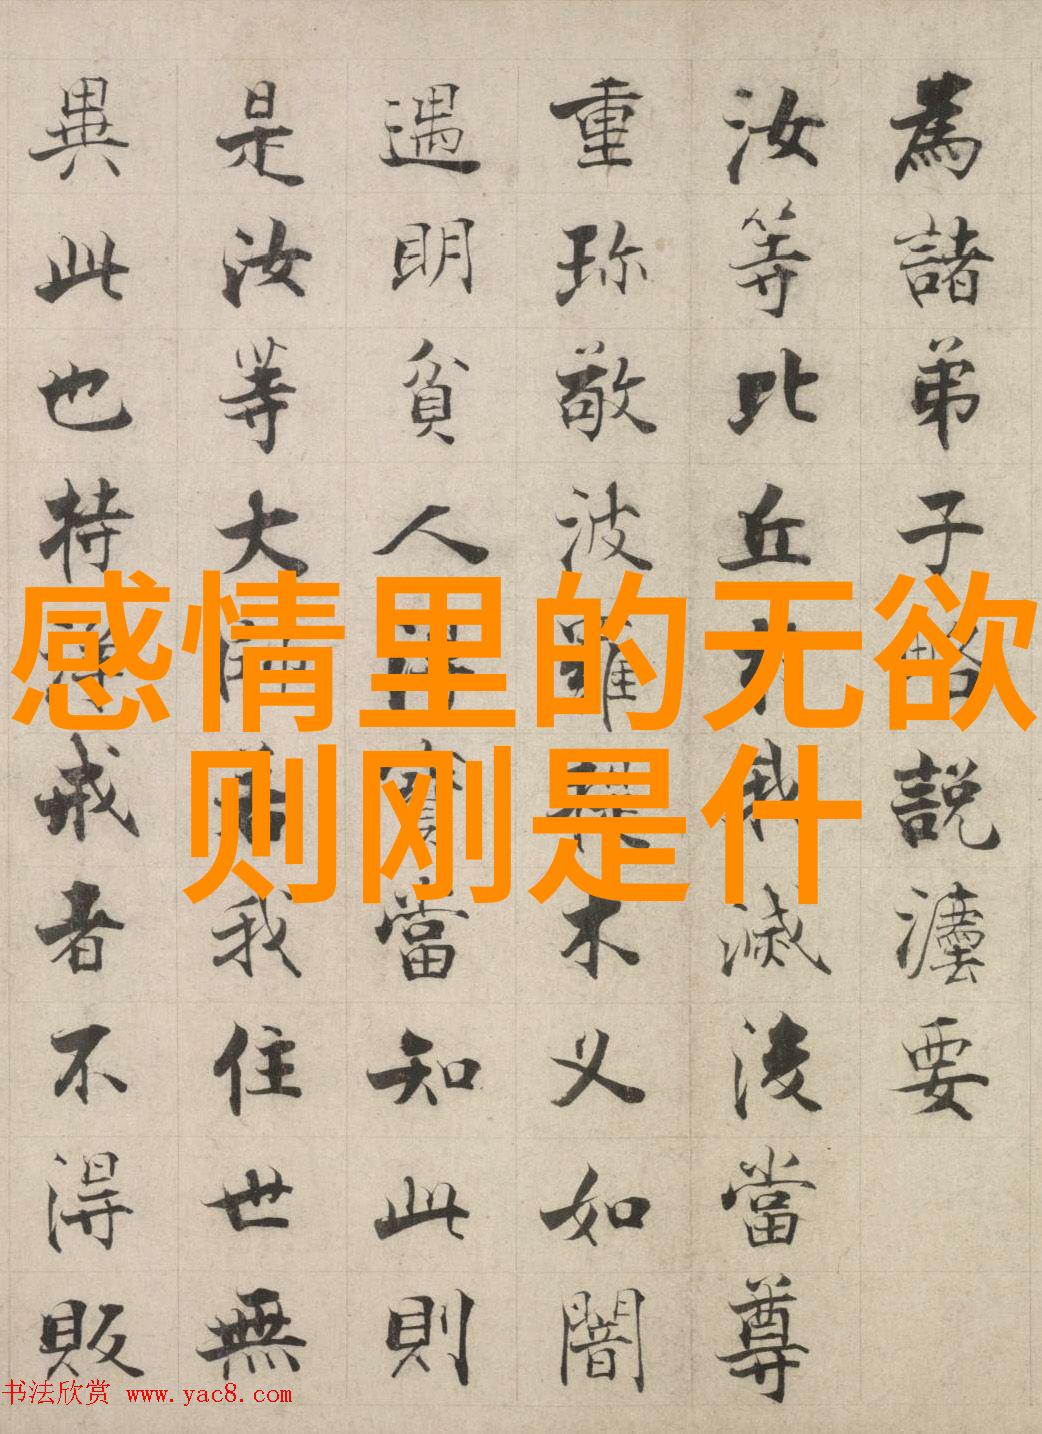 為諸弟子略説灋要
汝等比丘於我滅後當尊
重珎敬波羅提木义如闇
遇明貧人得寳當知此則
是汝等大師若我住世無
異此也持淨戒者不得販
感情里的无欲
则刚是什
书法欣赏 www.yac8.com